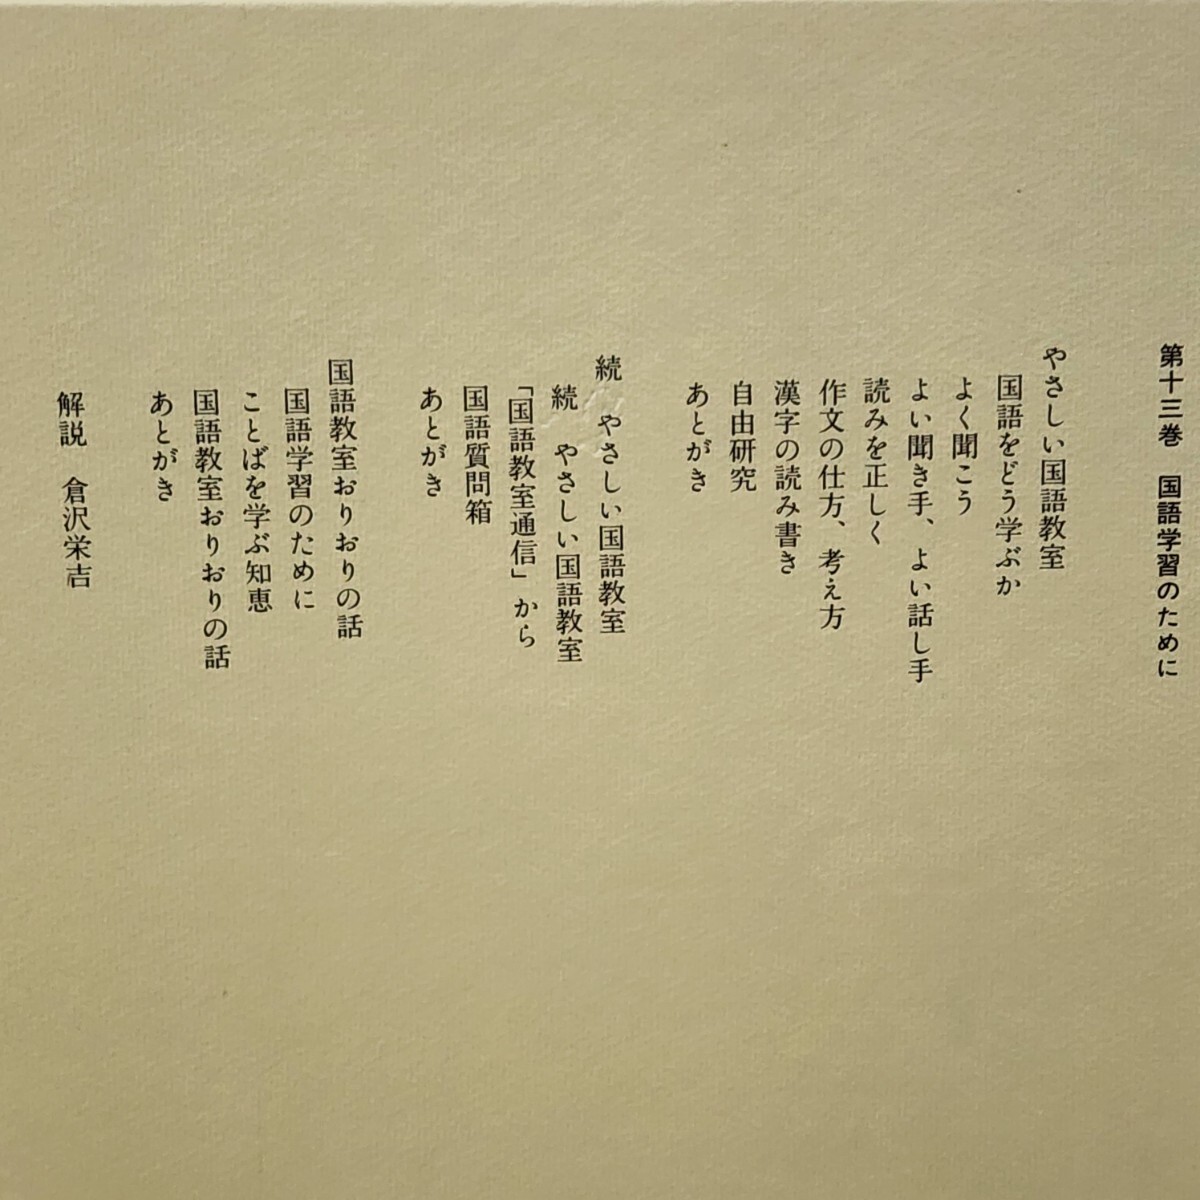 第十三巻　国語学習のために
やさしい国語教室
国語をどう学ぶか
よく聞こう
よい聞き手、よい話し手
読みを正しく
作文の仕方、考え方
漢字の読み書き
自由研究
あとがき
続　やさしい国語教室
続　やさしい国語教室
「国語教室通信」から
国語質問箱
あとがき
国語教室おりおりの話
国語学習のために
ことばを学ぶ知恵
国語教室おりおりの話
あとがき
解説　倉沢栄吉